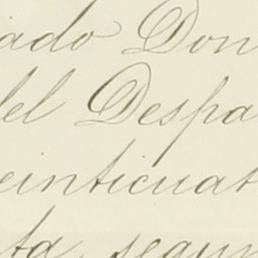 ado Don
del Despa
einticuat
ta, segun